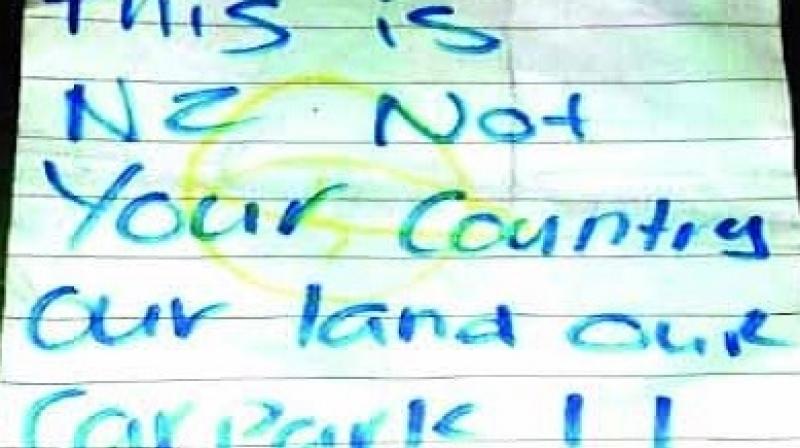 This is
NZ Not
Your Country
our land our
Car Park !!